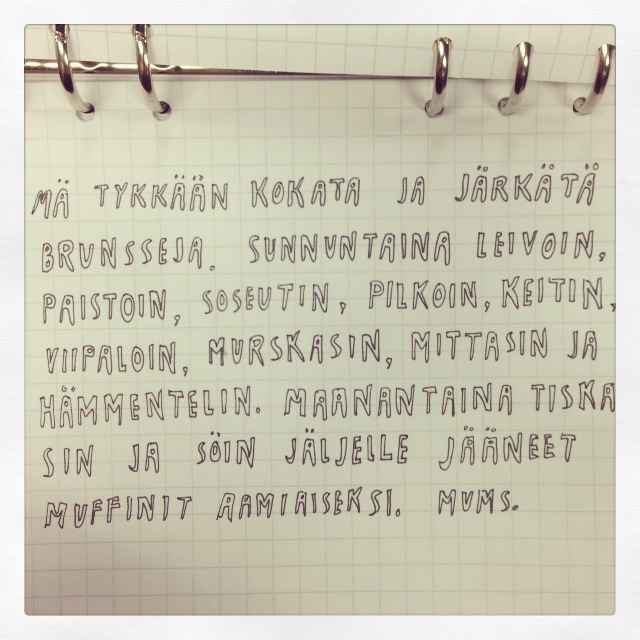 MÄ TYKKÄÄN KOKATA JA JÄRKÄTÄ
BRUNSSEJA. SUNNUNTAINA LEIVOIN,
PAISTOIN, SOSEUTIN, PILKOIN, KEITIN,
VIIPALOIN, MURSKASIN, MITTASIN JA
HÄMMENTELIN. MAANANTAINA TISKA
SIN JA SÖIN JÄLJELLE JÄÄNEET
MUFFINIT AAMIAISEKSI. MUMS.